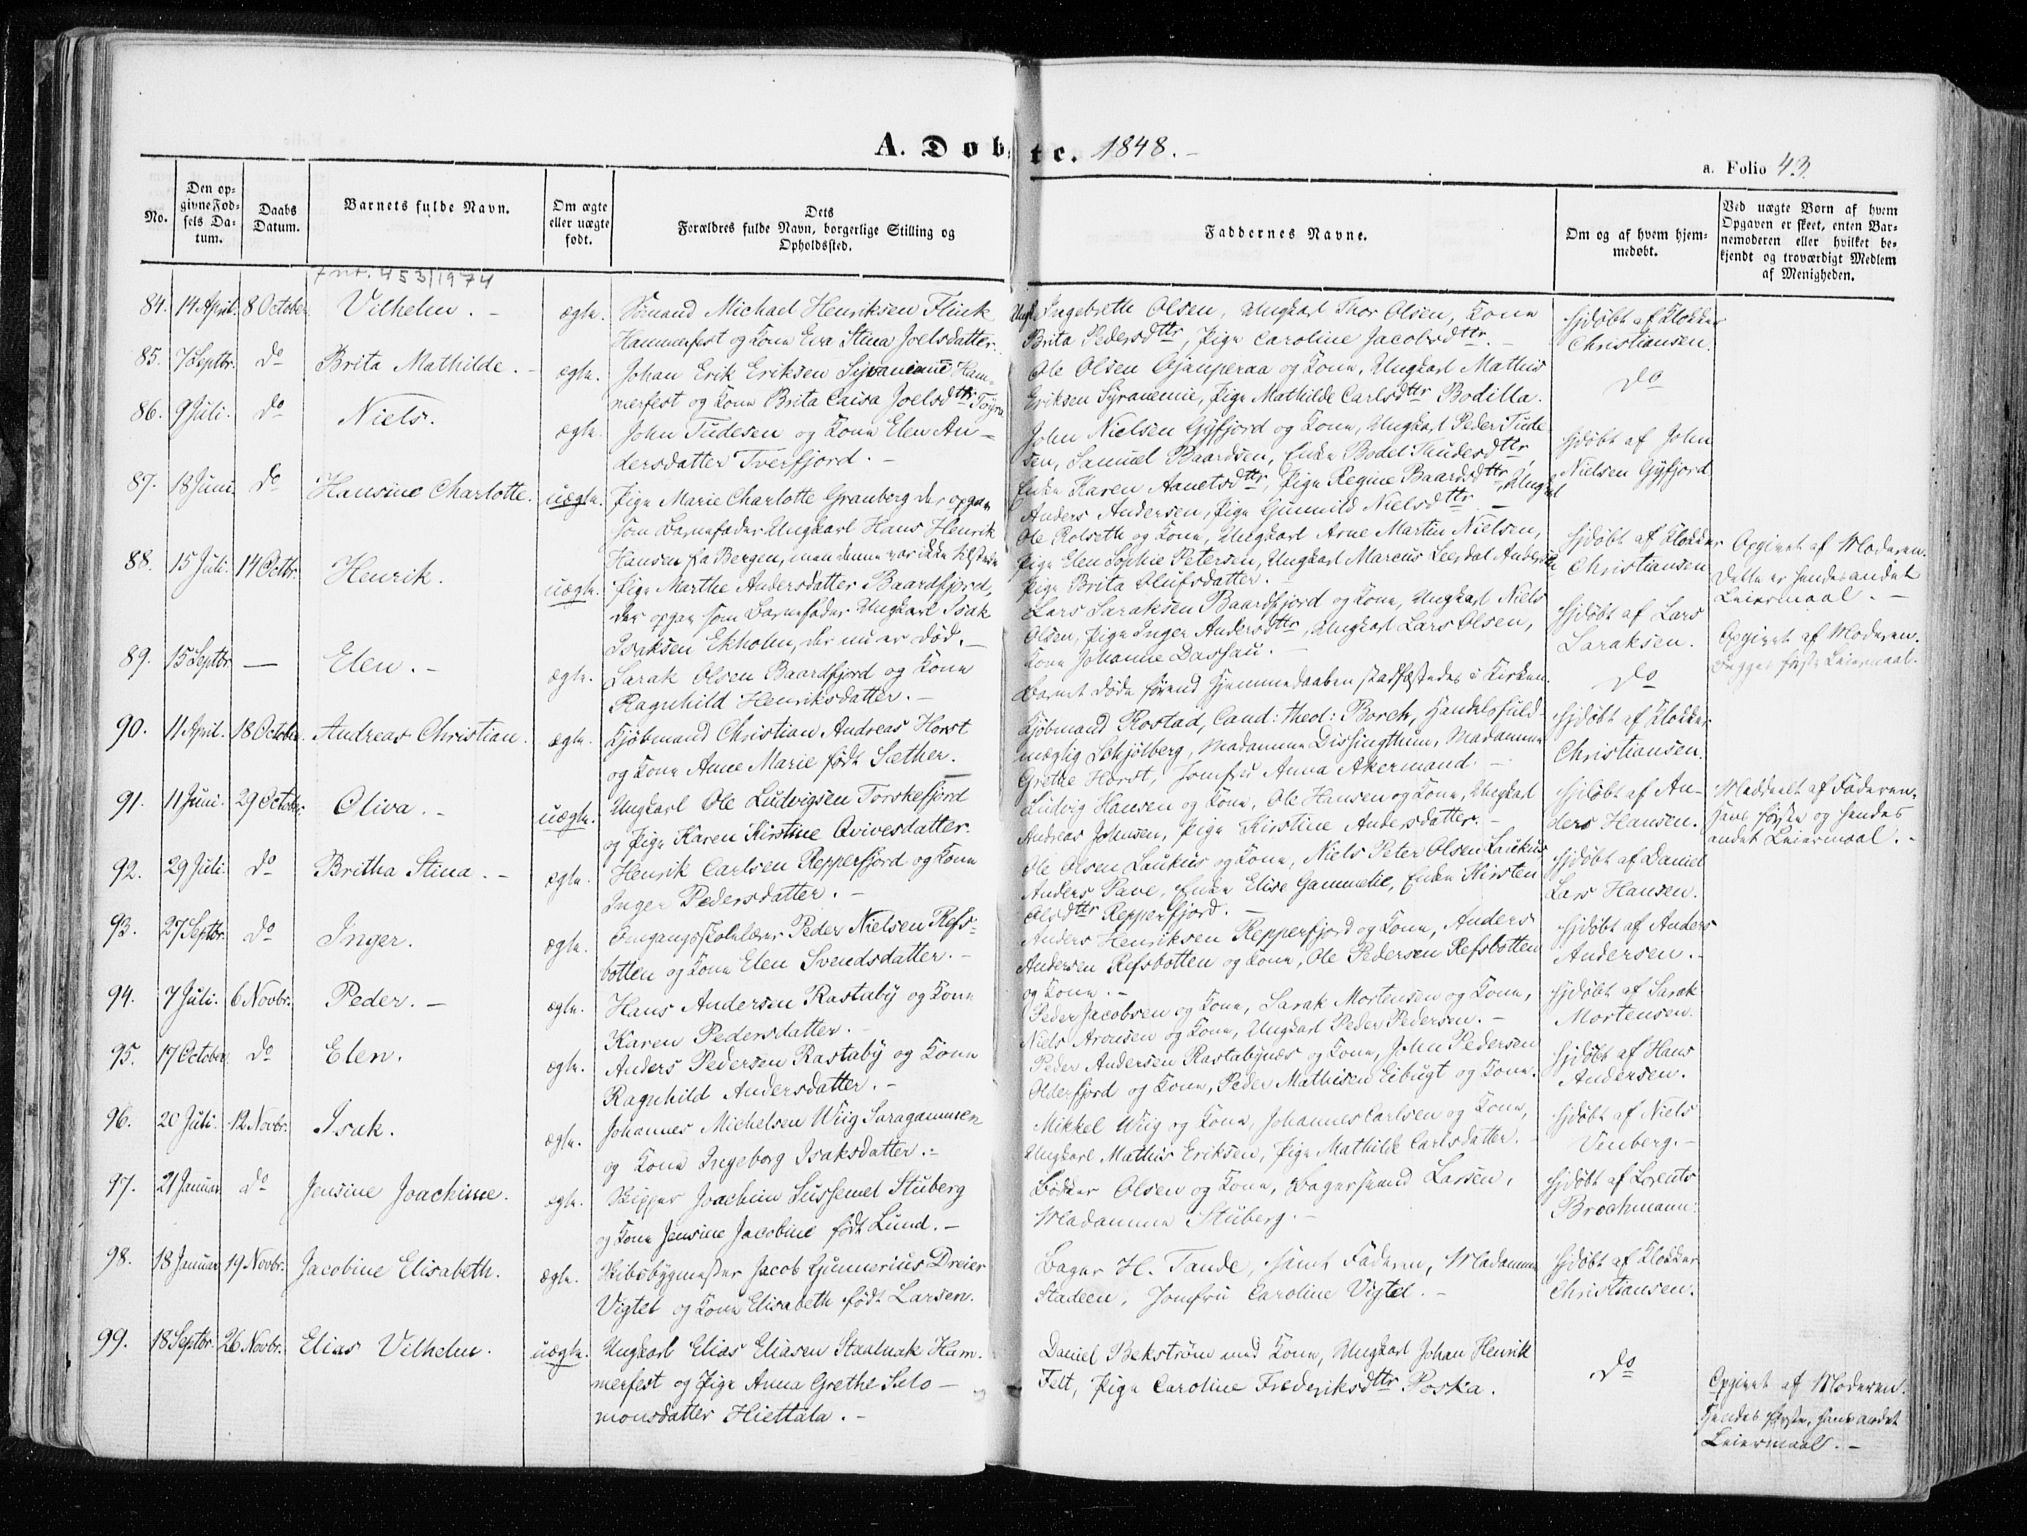 A. Døbte. 1848. -
a. Folio 43.
No.
Den opgivne Fødsels Datum.
Daabs Datum.
Barnets fulde Navn.
Om ægte eller uægte født.
Dets Forældres fulde Navn, borgerlige Stilling og Opholdssted.
Faddernes Navne.
Om og af hvem hjemmedøbt.
Ved uægte Børn af hvem Opgaven er skeet, enten Barnemoderen eller hvilket bekjendt og troværdigt Medlem af Menigheden.
fnr. 453/1974
84. 14 April. 8 October Vilhelm. - ægte.
Sømand Michael Henriksen Flink
Hammerfest og Kone Eva Stina Joelsdatter.
Ungk. Ingebreth Olsen, Ungkarl Thor Olsen, Kone
Brita Pedersdttr, Pige Caroline Jacobsdttr. -
Hjdøbt af Klokker
Christiansen.
85. 7 Septbr. Do Brita Mathilde. - ægte.
Johan Erik Eriksen Syvanemie Ham-
merfest og Kone Brita Caisa Joelsdttr
Ole Olsen Ajanperaa og Kone, Ungkarl Mathis
Eriksen Syvanemie, Pige Mathilde Carlsdttr Bodilla.
Do
86. 9 Juli. Do Niels. ægte.
John Tudesen og Kone Elen An-
dersdatter Tverfjord. -
John Nielsen Gyfjord og Kone, Ungkarl Peder Tude-
sen, Samuel Baardsen, Enke Bodel Thudesdttr,
Hjdøbt af John
Nielsen Gyfjord
87. 18 Juni. Do Hansine Charlotte. uægte.
Pige Marie Charlotte Granberg der opgav
som Barnefader Ungkarl Hans Henrik
Hansen fra Bergen, men denne var ikke tilstede
Enke Karen Aanetsdttr, Pige Regine Baardsdttr, Ungkarl
Anders Andersen, Pige Gunnild Nielsdttr -
Ole Rolseth og Kone, Ungkarl Arne Martin Nielsen,
Pige Elen Sophie Petersen, Ungkarl Marcus Leerdal
Pige Brita Olufsdatter. -
Hjdøbt af Klokker
Christiansen
Opgivet af Moderen.
Dette er hendes andet
Leiermaal. -
88. 15 Juli. 14 Octbr. Henrik. uægte.
Pige Marthe Andersdatter Baardfjord,
der opgav som Barnefader Ungkarl Isak
Isaksen Ekholm, der nu er død. -
Lars Saraksen Baardfjord og Kone, Ungkarl Niels
Olsen, Pige Inger Andersdttr, Ungkarl Lars Olsen,
Kone Johanne Dassau. -
Hjdøbt af Lars
Saraksen.
Opgivet af Moderen.
Begges første Leiermaal.
89. 15 Septbr - Elen. - ægte.
Sarak Olsen Baardfjord og Kone
Ragnhild Henriksdatter. -
Barnet døde førend Hjemmedaaben stadfæstedes i Kirken.
Do
90. 11 April. 18 October. Andreas Christian. ægte.
Kjøbmand Christian Andreas Horst
og Kone Anne Marie født Sæther.
Kjøbmand Rostad, Cand: theol: Borch, Handelsfuld-
mægtig Schjølberg, Madamme Dissingthun, Madamme
Grethe Horst, Jomfru Anna Akermand. -
Hjdøbt af Klokker
Christiansen.
91. 11 Juni. 29 October. Oliva. - uægte.
Ungkarl Ole Ludvigsen Torskefjord
og Pige Karen Kirstine Qvivesdatter.
Ludvig Hansen og Kone, Ole Hansen og Kone, Ungkarl
Andreas Johnsen, Pige Kirstine Andersdatter. -
Hjdøbt af An-
ders Hansen.
Meddeelt af Faderen.
Hans første og hendes
andet Leiermaal. -
92. 29 Juli. Do Britha Stina. - ægte.
Henrik Carlsen Repperfjord og Kone
Inger Pedersdatter. -
Ole Olsen Laukus og Kone, Niels Peter Olsen Laukus
Anders Pave, Enke Elise Gammelie, Enke Kirsten
Olsdttr Repperfjord. -
Hjdøbt af Daniel
Lars Hansen.
93. 27 Septbr. Do Inger. ægte.
Omgangsskolelærer Peder Nielsen Refs-
botten og Kone Elen Svendsdatter. -
Anders Henriksen Repperfjord og Kone, Anders
Andersen Refsbotten og Kone, Ole Pedersen Refsbotten
og Kone. -
Hjdøbt af Anders
Andersen. -
94. 7 Juli. 6 Novbr. Peder. - ægte.
Hans Andersen Rastaby og Kone
Karen Pedersdatter. -
Peder Jacobsen og Kone, Sarak Mortensen og Kone,
Niels Aronsen og Kone, Ungkarl Peder Pedersen. -
Hjdøbt af Sarak
Mortensen.
95. 17 October. Do Elen. ægte.
Anders Pedersen Rastaby og Kone
Ragnhild Andersdatter. -
Peder Andersen Rastabynæs og Kone, John Pedersen
Olderfjord og Kone, Peder Mathisen Eibugt og Kone.
Hjdøbt af Hans
Andersen.
96. 20 Juli. 12 Novbr. Isak. ægte.
Johannes Michelsen Wiig Saragammen
og Kone Ingeborg Isaksdatter. -
Mikkel Wiig og Kone, Johannes Carlsen og Kone,
Ungkarl Mathis Eriksen, Pige Mathilde Carlsdatter. -
Hjdøbt af Niels
Vinberg. -
97. 21 Januar. Do Jensine Joachime. ægte.
Skipper Joachim Sussemel Stuberg
og Kone Jensine Jacobine født Lund. -
Bødker Olsen og Kone, Bagersvend Larsen,
Madamme Stuberg. -
Hjdøbt af Lorents
Brochmann.
98. 18 Januar. 19 Novbr. Jacobine Elisabeth. ægte.
Skibsbygmester Jacob Gunnerius Dreier
Vigtel og Kone Elisabeth født Larsen.
Bager H. Tande, samt Faderen, Madamme
Stadeen, Jomfru Caroline Vigtel. -
Hjdøbt af Klokker
Christiansen.
99. 18 Septbr. 26 Novbr. Elias Vilhelm. uægte.
Ungkarl Elias Eliasen Staalnak Ham-
merfest og Pige Anna Grethe Salo-
monsdatter Hiettala. -
Daniel Bekstrøm med Kone, Ungkarl Johan Henrik
Felt, Pige Caroline Frederiksdttr Poska.
Do
Opgivet af Moderen.
Hendes første, hans andet
Leiermaal. -